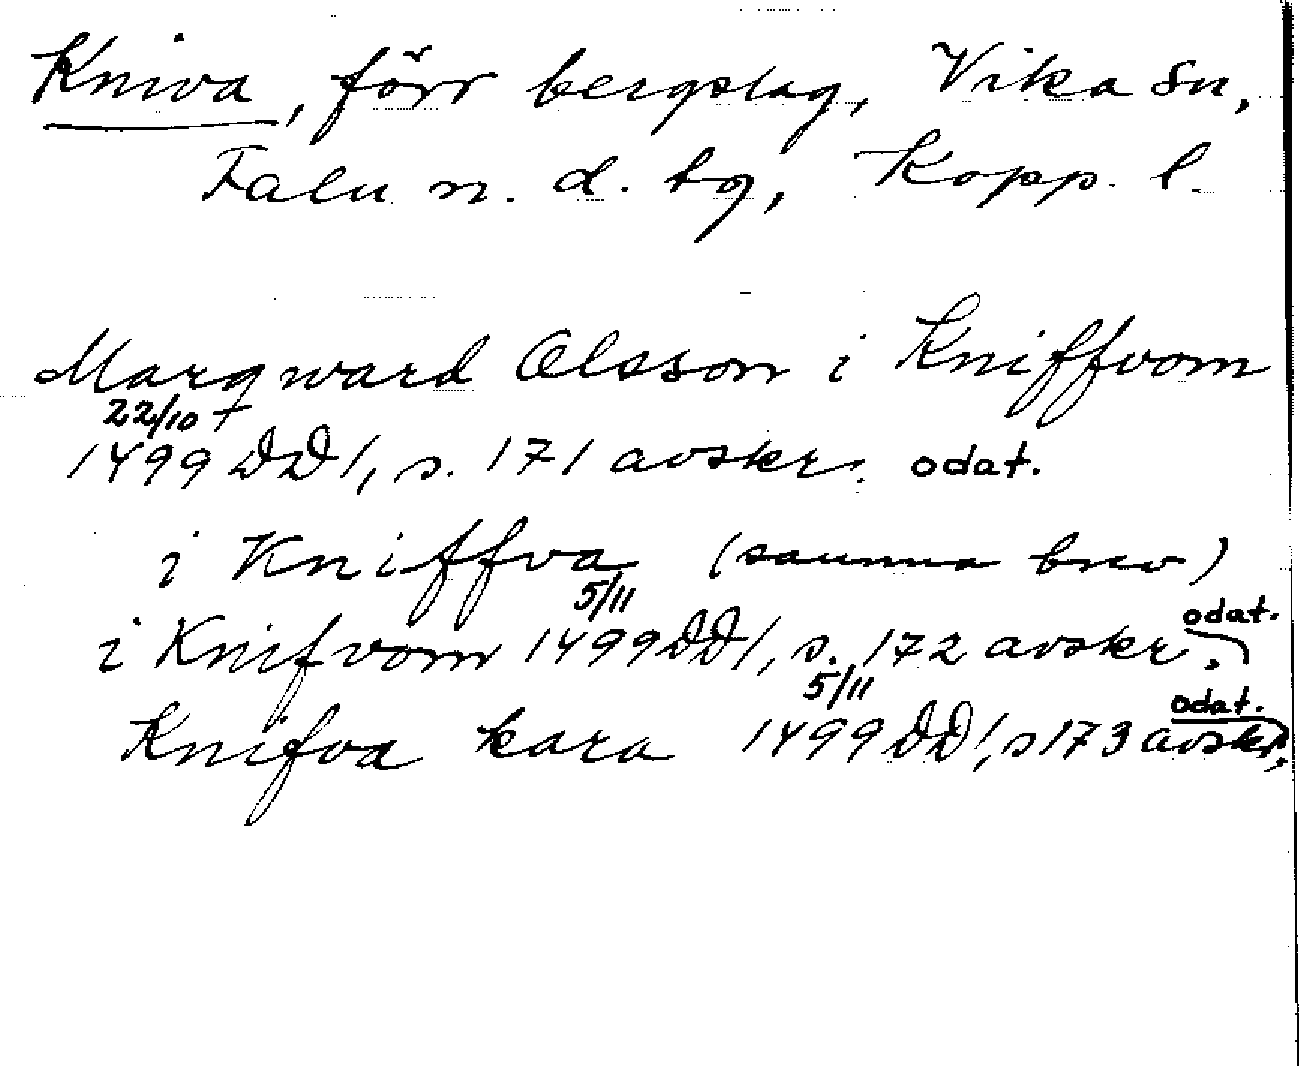 Kniva, förr bergslag, Vika sn,
Falu n. d. tg, Kopp. l.
Marqward Olsson i Kniffvom
22/10
1499 DD 1, s. 171 avskr. odat.
i Kniffva (samma brev)
5/11 odat.
i Knifvom 1499 DD 1, s. 172 avskr.
5/11 odat.
Knifva kara 1499 DD 1, s 173 avskr.